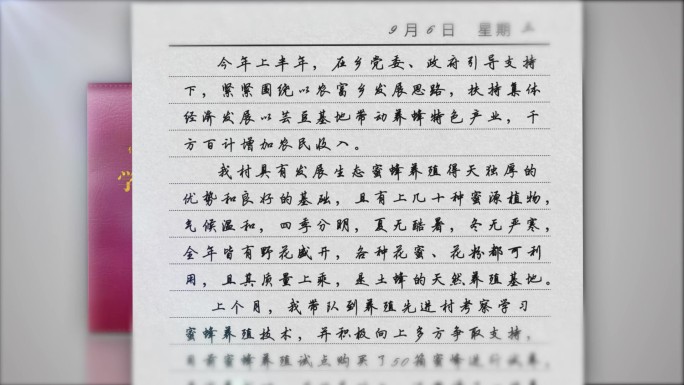 9月6日 星期五
今年上半年，在乡党委、政府引导支持
下，紧紧围绕以农富乡发展思路，扶持集体
经济发展以芸豆基地带动养蜂特色产业，千
方百计增加农民收入。
我村具有发展生态蜜蜂养殖得天独厚的
优势和良好的基础，且有上几十种蜜源植物，
气候温和，四季分明，夏无酷暑，冬无严寒，
全年皆有野花盛开，各种花蜜、花粉都可利
用，且其质量上乘，是土蜂的天然养殖基地。
上个月，我带队到养殖先进村考察学习
蜜蜂养殖技术，并积极向上多方争取支持，
目前蜜蜂养殖试点购买了50箱蜜蜂进行试养，
学